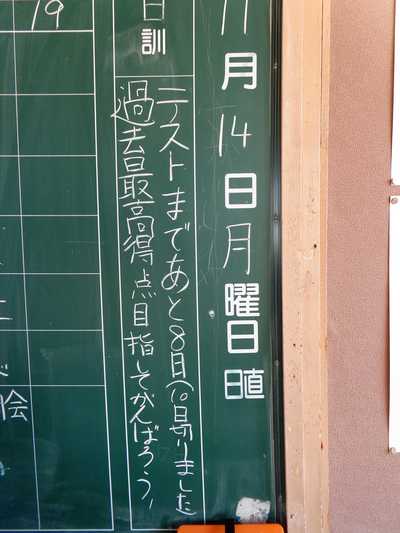 11月14日月曜日
日直
日訓
テストまであと8日(10日切りました)
過去最高得点目指してがんばろう!
19
会